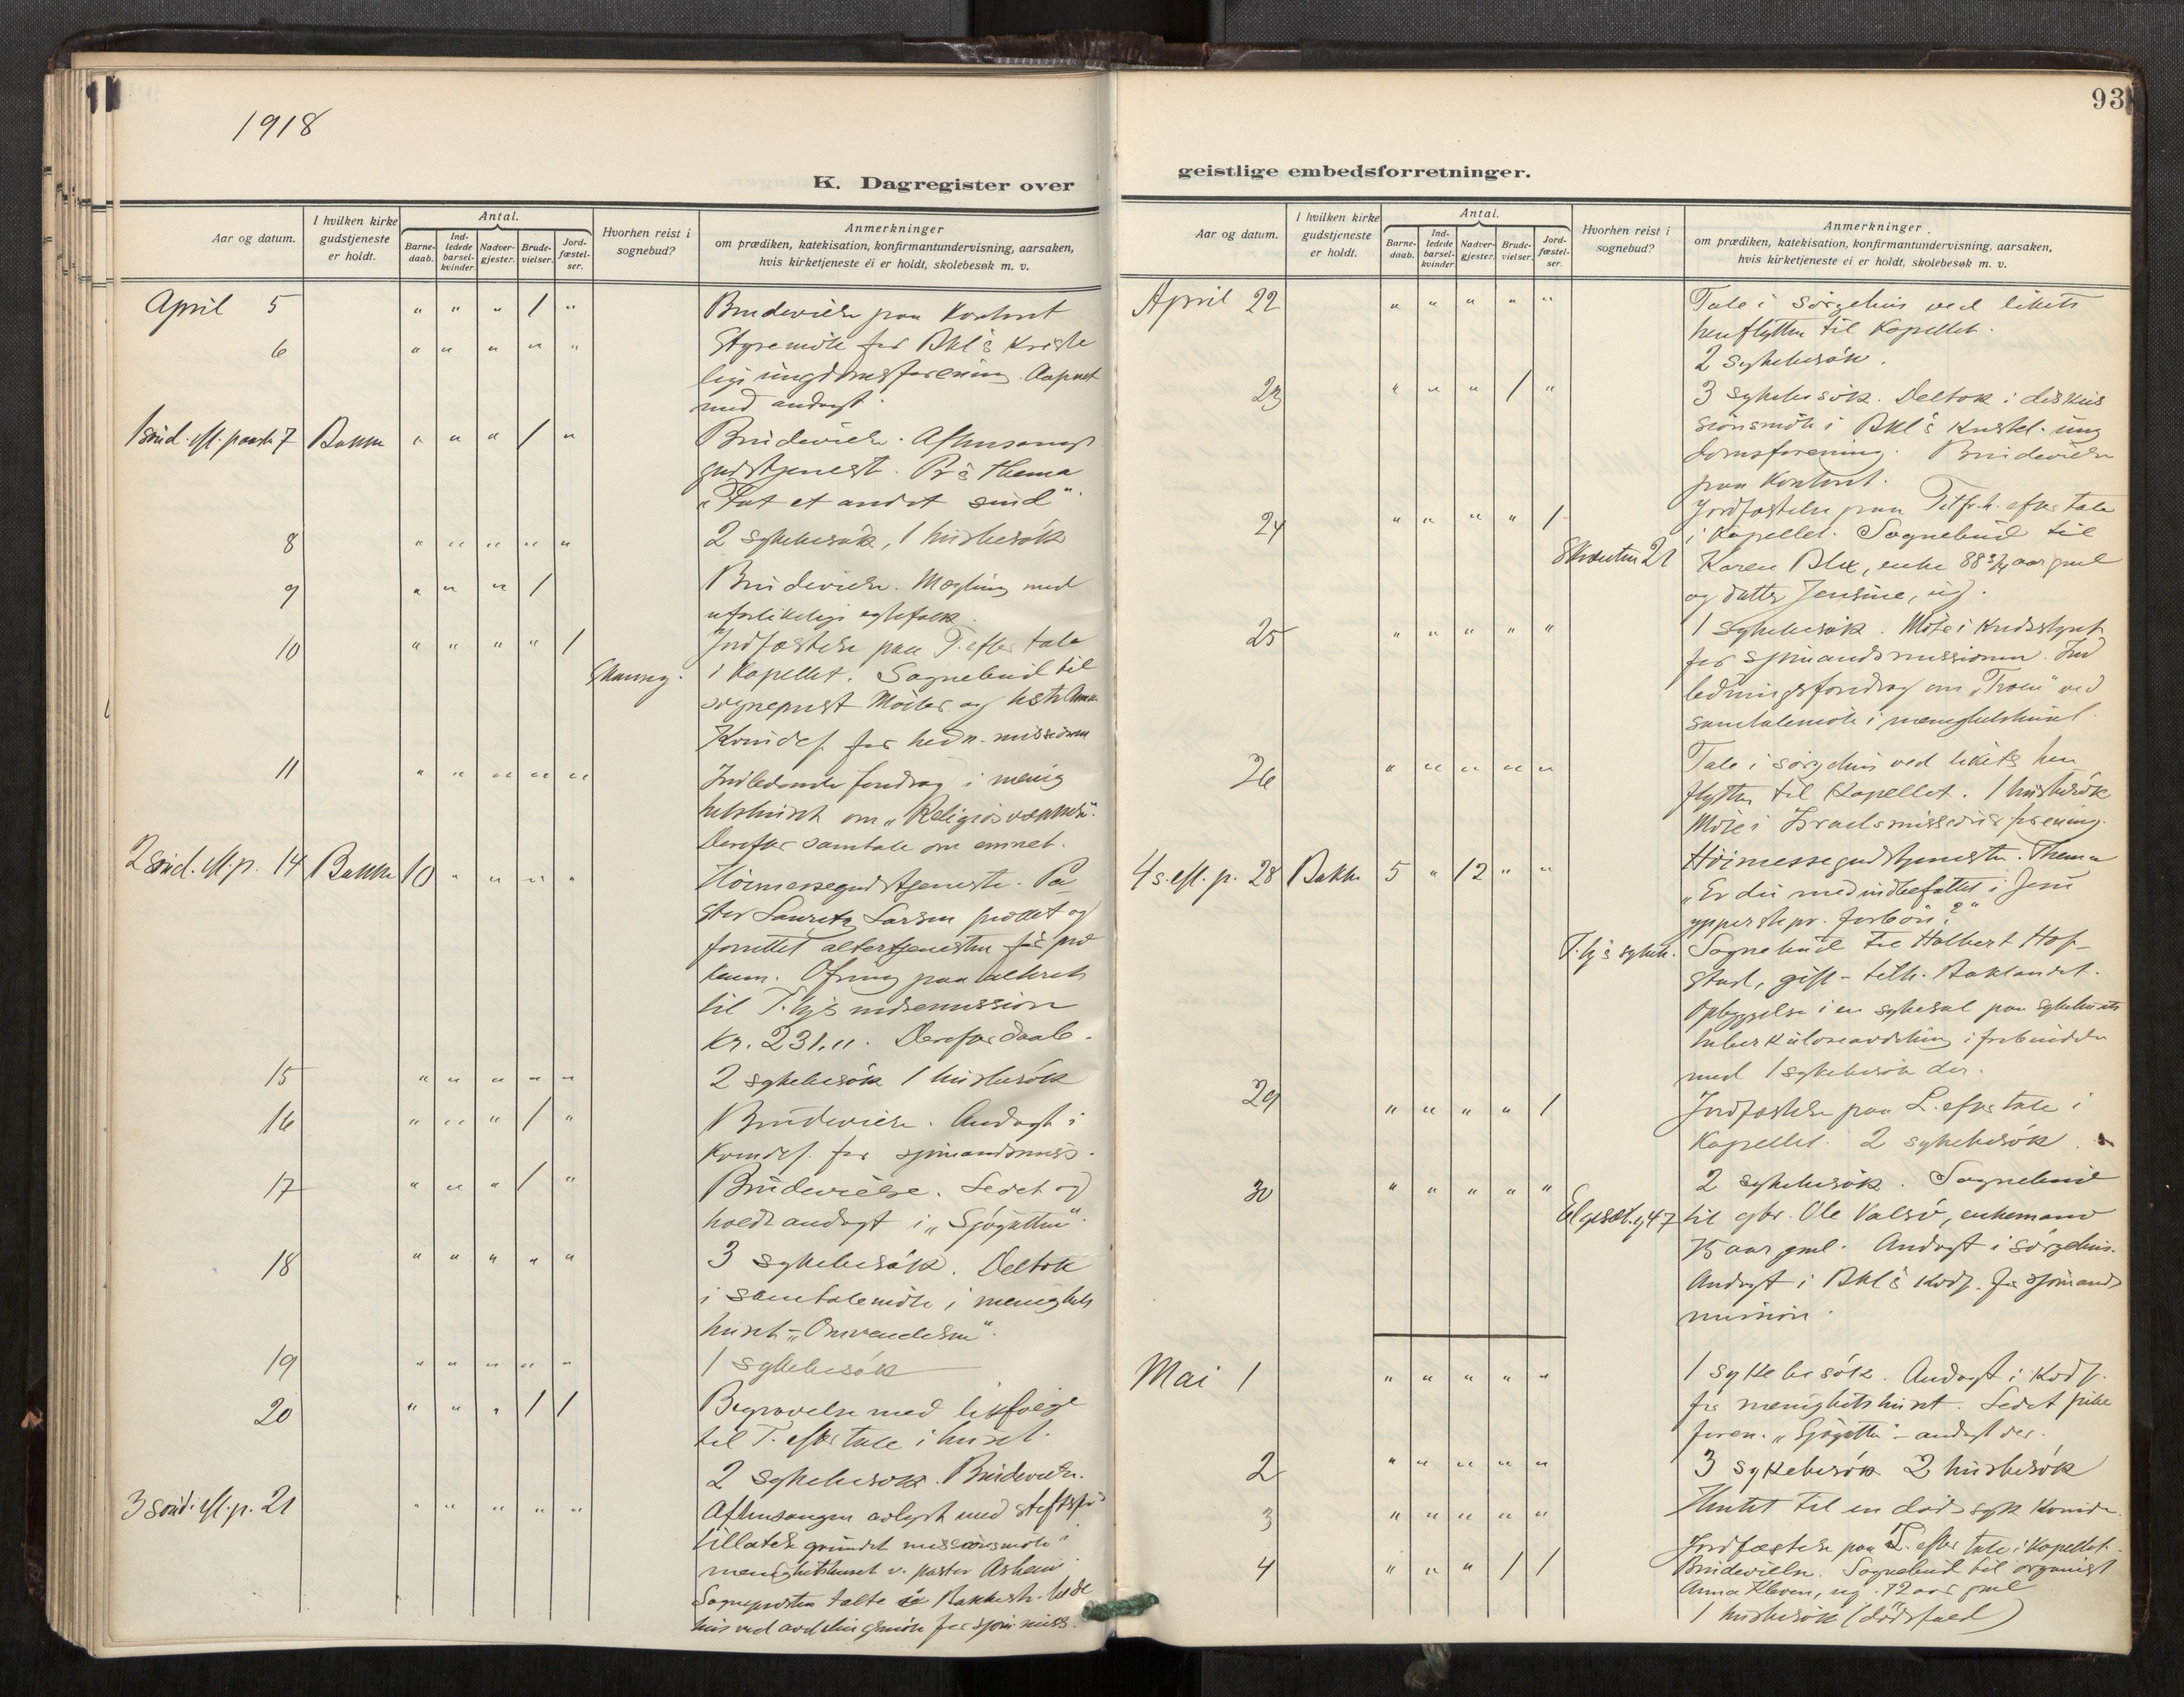 1918
K. Dagregister over
Aar og datum.
I hvilken kirke gudstjeneste er holdt.
Antal.
Barne-daab.
Ind-ledede barsel-kvinder.
Nadver-gjester.
Brude-vielser.
Jord-fæstel-ser.
Hvorhen reist i sognebud?
Anmerkninger
om prædiken, katekisation, konfirmantundervisning, aarsaken,
hvis kirketjeneste ei er holdt, skolebesøk m. v.
April 5 " " " 1 " Brudevielse paa Kontoret
6 " " " " " Styremöte for Bkl's Kriste
lige ungdomsforening. Aapnet
med andagt.
1 sönd. eft. paaske 7 Bakke " " " 1 " Brudevielse. Aftensangs
gudstjeneste. Thema
"Fat et andet sind".
8 " " " " " 2 sykebesök, 1 husbesök
9 " " " 1 Brudevielse. Mægling med
uforlikelige egtefolk.
10 " " " " 1 Jordfæstelse paa T. efter tale
i Kapellet. Sognebud til
sogneprest
Kvindef. for hedn. missionen
11 " " " " " Indledende foredrag i menig
hetshuset om "Religiös vækkelse".
Derefter samtale om emnet.
2 sönd. eft. p. 14 Bakke 10 " " " " Höimessegudstjeneste. Pa
stor Lauritz Larsen præket og
forrettet altertjenesten för præ
kenen. Ofring paa alteret
til T.hjs indremission
Kr. 231.11. Derefter daab.
15 " " " " " 2 sykebesök 1 husbesök
16 " " " 1 " Brudevielse. Andagt i
Kvindef. for sjömandsmiss.
17 " " " 1 " Brudevielse. Ledet og
holdt andagt i "Sjögutten".
18 " " " " " 3 sykebesök. Deltok
i samtalemöte i menighets
huset - "Omvendelsen".
19 " " " " " 1 sykebesök
20 " " " 1 1 Begravelse med likfölge
til T. efter tale i huset.
2 sykebesök. Brudevielse.
3 sönd. eft. p. 21 " " " " " Aftensangen avlyst med stiftspr's
tillatelse grundet missionsmöte i
menighetshuset v. pastor
Sognepresten talte i Bakkest. bede
hus ved avdelingsmöte for sjöm. miss.
93
geistlige embedsforretninger.
Aar og datum.
I hvilken kirke gudstjeneste er holdt.
Antal.
Barne-daab.
Ind-ledede barsel-kvinder
Nadver-gjester.
Brude-vielser.
Jord-fæstel-ser.
Hvorhen reist i sognebud?
Anmerkninger
om prædiken, katekisation, konfirmantundervisning, aarsaken,
hvis kirketjeneste ei er holdt, skolebesøk m. v.
April 22 " " " " " Tale i sörgehus ved likets
henflytten til Kapellet.
2 sykebesök.
23 " " " 1 " 3 sykebesök. Deltok i diskus
sionsmöte i Bkl's Kristel. ung
domsforening. Brudevielse
paa Kontoret.
24 " " " " 1 Jordfæstelse paa efter tale
i Kapellet. Sognebud til
21 Karen Blix, enke 88 3/4 aar gml
og datter Jensine, ug.
25 " " " " " 1 sykebesök. Möte i Kredsstyret
for sjömandsmissionen. Ind
ledningsforedrag om "Troen" ved
samtalemöte i menighetshuset.
26 " " " " " Tale i sörgehus ved likets hen
flytten til Kapellet. 1 husbesök
Möte i Israelsmissions forening.
4 s. eft. p. 28 Bakke 5 " 12 " " Höimessegudstjeneste. Thema
"Er du medindbefattet i Jesu
yppersteprl. forbön?"
T.hj's sykeh. Sognebud til Halbert Hof-
stad, gift - tilh. Baklandet.
Opbyggelse i en sykesal paa sykehusets
tuberkuloseavdeling i forbindelse
med 1 sykebesök der.
29 " " " " 1 Jordfæstelse paa L. efter tale i
Kapellet. 2 sykebesök.
30 " " " " " 2 sykebesök. Sognebud
Elgeset. g 47 til gbr. Ole Valsö, enkemand
75 aar gml. Andagt i sörgehus.
Andagt i Bkl's Kvdf. for sjömands
mission.
Mai 1 " " " " " 1 sykebesök. Andagt i Kvdf.
for menighetshuset. Ledet pike
foren. "Sjögutten" - andagt der.
2 " " " " " 3 sykebesök 2 husbesök
3 " " " " " Hentet til en dödssyk Kvinde.
Jordfæstelse paa L. efter tale i Kapellet.
4 " " " 1 1 Brudevielse. Sognebud til organist
Anna Kleven, ug. 72 aar gml
1 husbesök (dödsfald)